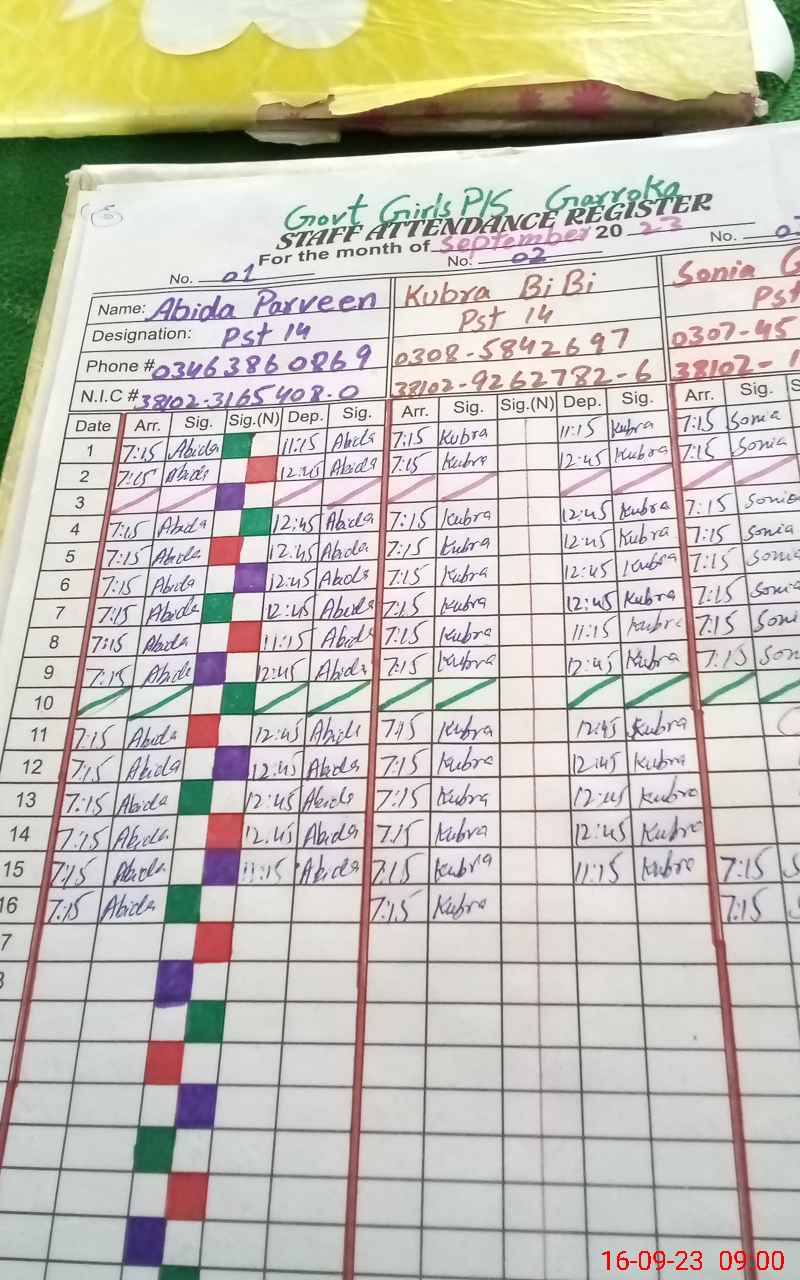 Govt Girls P/S Garroka
STAFF ATTENDANCE REGISTER
For the month of September 2023
No. 01 No. 02 No.
Name: Abida Parveen Kubra BiBi Sonia
Designation: Pst 14 Pst 14 Pst
Phone # 0346386 0869 0308-5842697 0307-45
N.I.C # 38102-3165408-0 38102-9262782-6 38102-
Date Arr. Sig. Sig.(N) Dep. Sig. Arr. Sig. Sig.(N) Dep. Sig. Arr. Sig.
1 7:15 Abida 11:15 Abida 7:15 Kubra 11:15 Kubra 7:15 Sonia
2 7:15 Abida 12:45 Abida 7:15 Kubra 12:45 Kubra 7:15 Sonia
3
4 7:15 Abida 12:45 Abida 7:15 Kubra 12:45 Kubra 7:15 Sonia
5 7:15 Abida 12:45 Abida 7:15 Kubra 12:45 Kubra 7:15 Sonia
6 7:15 Abida 12:45 Abida 7:15 Kubra 12:45 Kubra 7:15 Sonia
7 7:15 Abida 12:45 Abida 7:15 Kubra 12:45 Kubra 7:15 Sonia
8 7:15 Abida 11:15 Abida 7:15 Kubra 11:15 Kubra 7:15 Soni
9 7:15 Abida 12:45 Abida 7:15 Kubra 12:45 Kubra 7:15 Son
10
11 7:15 Abida 12:45 Abida 7:15 Kubra 12:45 Kubra
12 7:15 Abida 12:45 Abida 7:15 Kubra 12:45 Kubra
13 7:15 Abida 12:45 Abida 7:15 Kubra 12:45 Kubra
14 7:15 Abida 12:45 Abida 7:15 Kubra 12:45 Kubra
15 7:15 Abida 11:15 Abida 7:15 Kubra 11:15 Kubra 7:15 S
16 7:15 Abida 7:15 Kubra 7:15
7
16-09-23 09:00